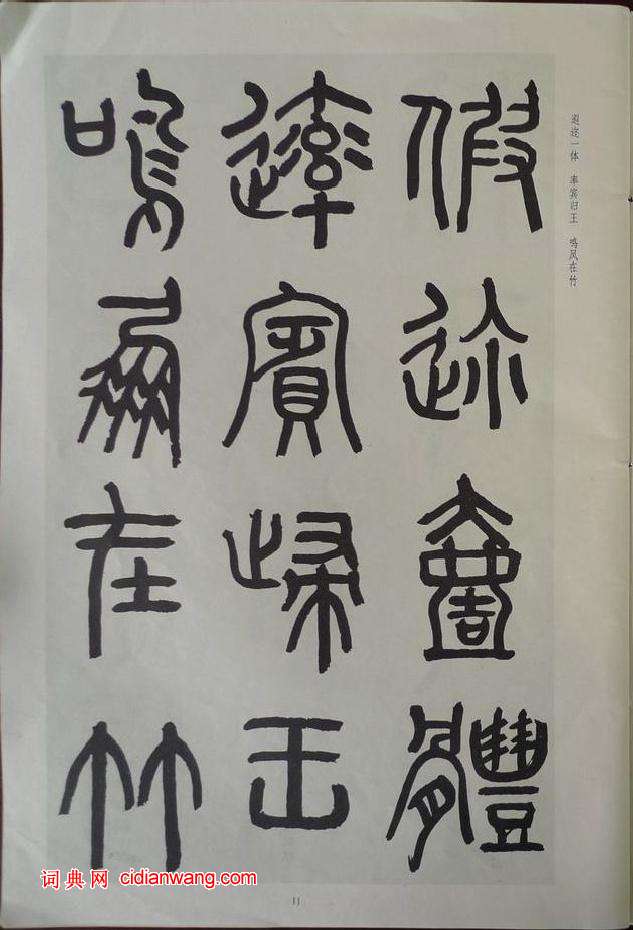 遐迩一体　率宾归王　鸣凤在竹
假迩壹體
䢦賓歸王
鳴鳳在竹
11
词典网 cidianwang.com